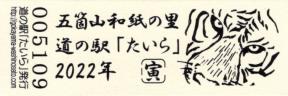 五箇山和紙の里
道の駅「たいら」
2022年 寅
005109
道の駅「たいら」発行